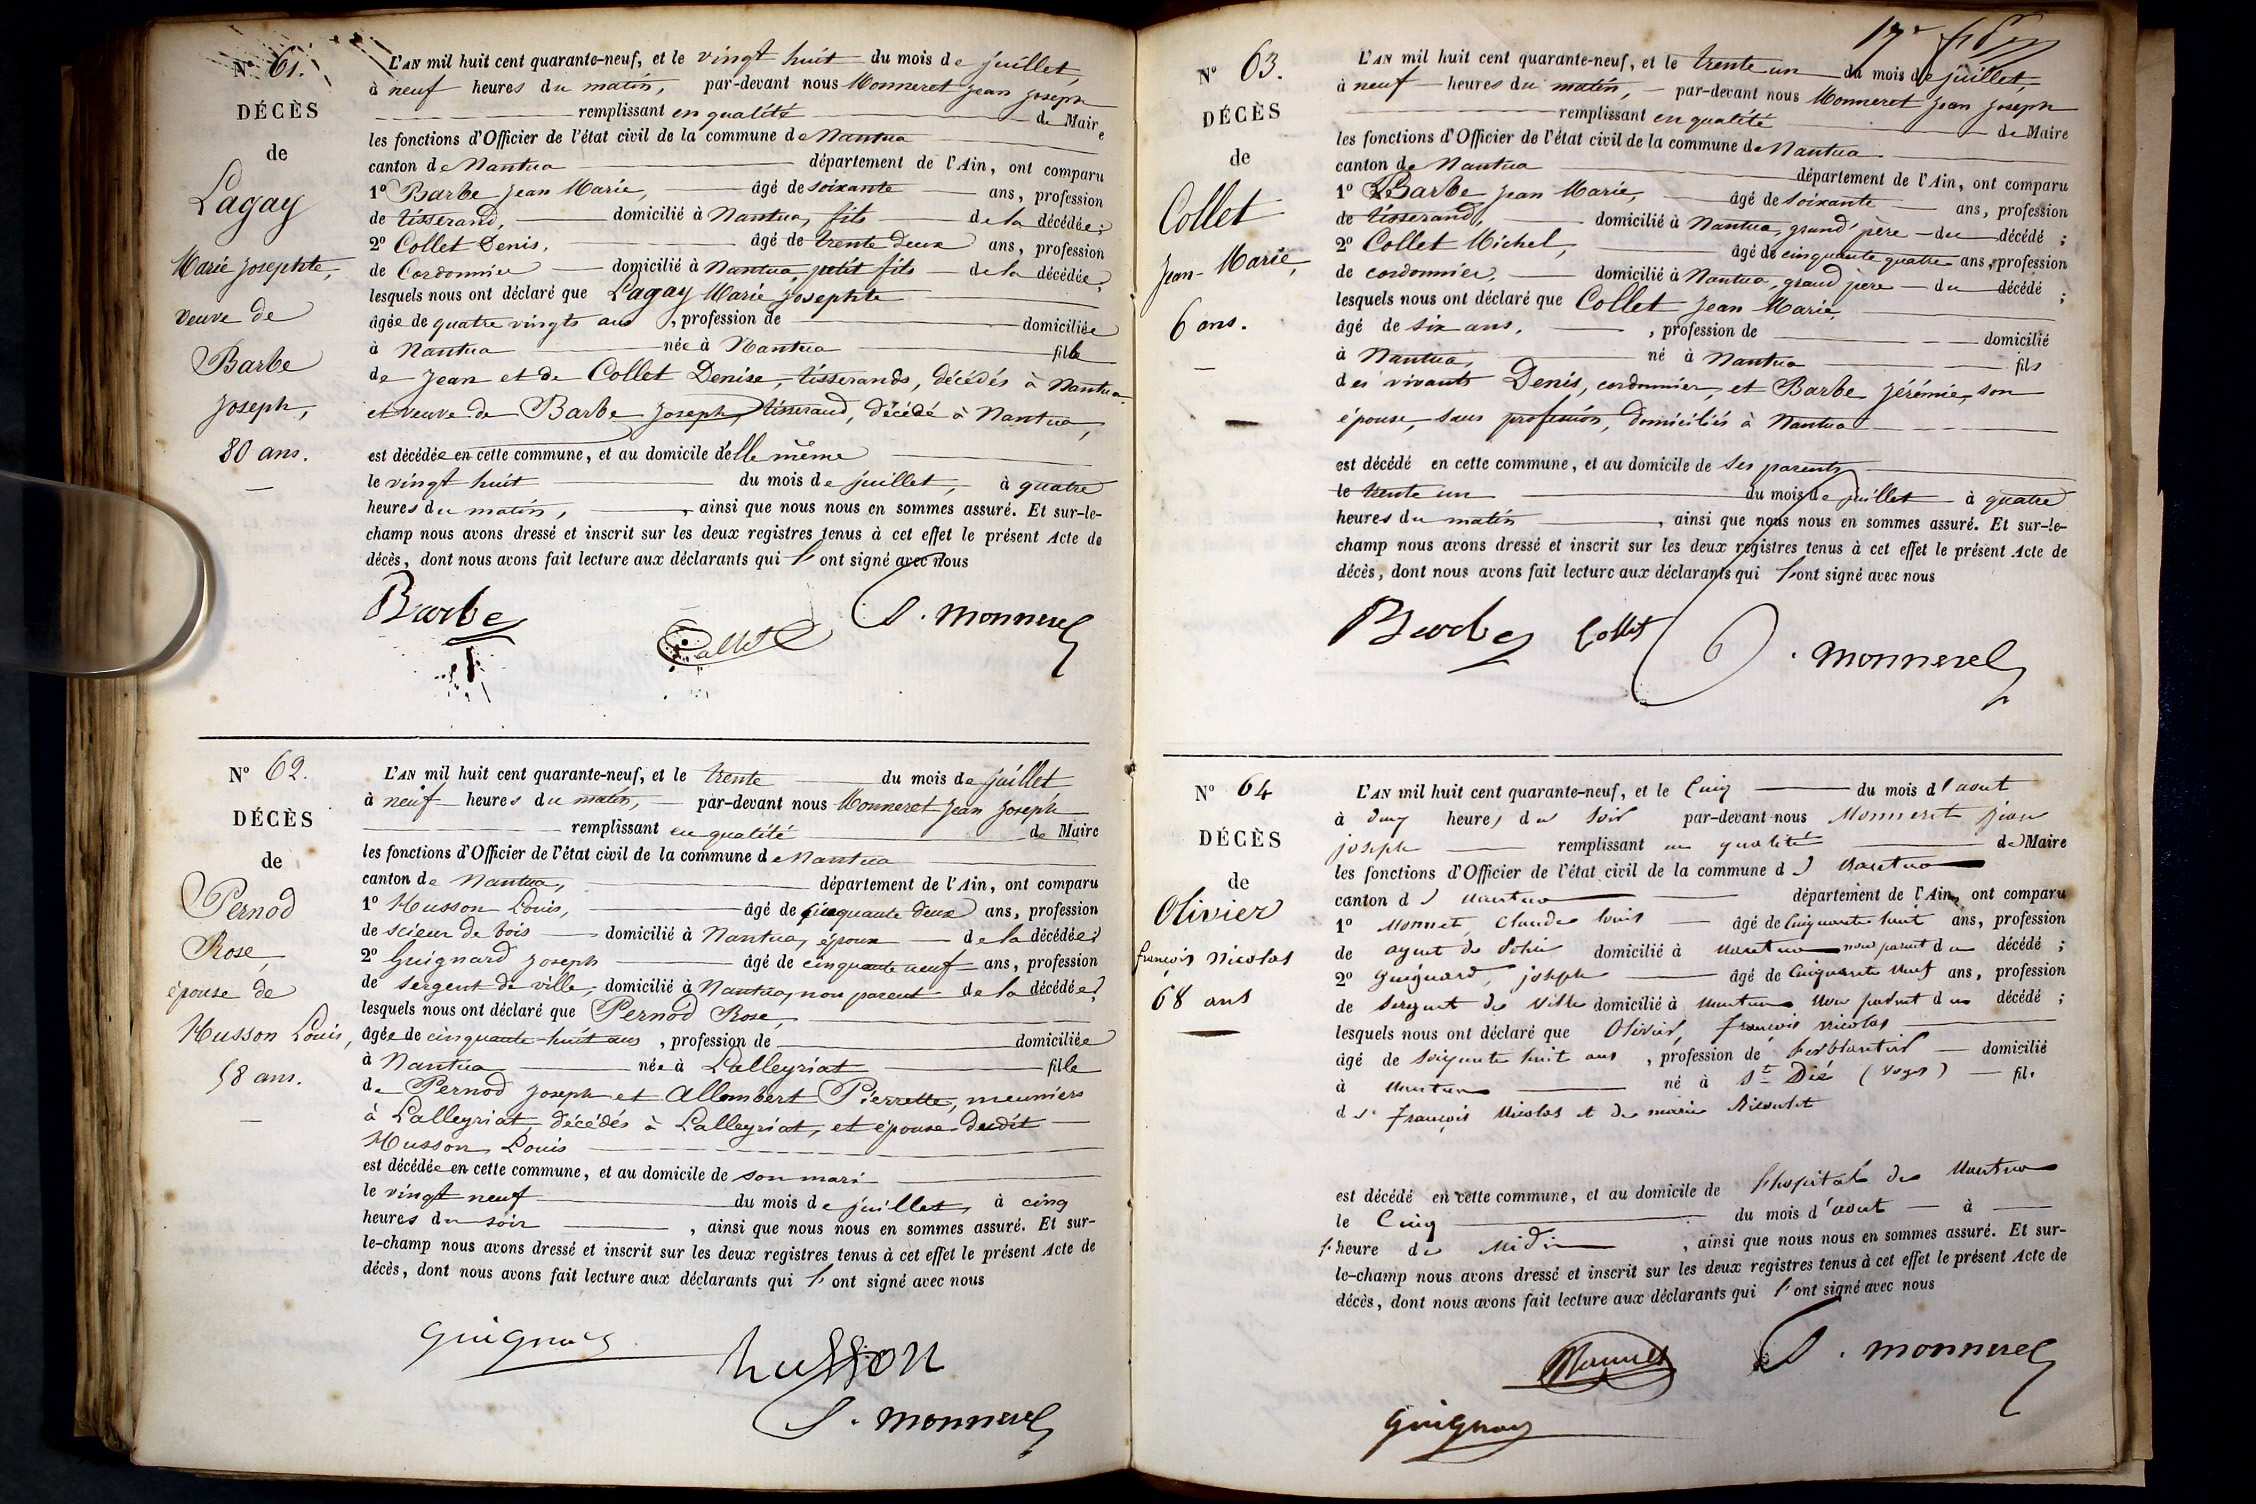 N° 61.
DÉCÈS
de
Lagay
Marie Josephte,
veuve de
Barbe
Joseph,
80 ans.
L'AN mil huit cent quarante-neuf, et le vingt huit du mois de juillet,
à neuf heures du matin, par-devant nous Monneret Jean Joseph
remplissant en qualité de Maire
les fonctions d'Officier de l'état civil de la commune de Nantua
canton de Nantua département de l'Ain, ont comparu
1° Barbe Jean Marie, âgé de soixante ans, profession
de tisserand, domicilié à Nantua, fils de la décédée;
2° Collet Denis, âgé de trente deux ans, profession
de Cordonnier domicilié à Nantua, petit fils de la décédée;
lesquels nous ont déclaré que Lagay Marie Josephte
âgée de quatre vingts ans, profession de domiciliée
à Nantua née à Nantua fille
de Jean et de Collet Denise, tisserands, décédés à Nantua
et veuve de Barbe Joseph, tisserand, décédé à Nantua,
est décédée en cette commune, et au domicile d'elle même
le vingt huit du mois de juillet, à quatre
heures du matin, ainsi que nous nous en sommes assuré. Et sur-le-
champ nous avons dressé et inscrit sur les deux registres tenus à cet effet le présent Acte de
décès, dont nous avons fait lecture aux déclarants qui l'ont signé avec nous
Barbe Collet J. Monneret
N° 62.
DÉCÈS
de
Pernod
Rose,
épouse de
Husson Louis,
58 ans.
L'AN mil huit cent quarante-neuf, et le trente du mois de juillet
à neuf heures du matin, par-devant nous Monneret Jean Joseph
remplissant en qualité de Maire
les fonctions d'Officier de l'état civil de la commune de Nantua
canton de Nantua, département de l'Ain, ont comparu
1° Husson Louis, âgé de cinquante deux ans, profession
de scieur de bois domicilié à Nantua, époux de la décédée;
2° Guignard Joseph âgé de cinquante neuf ans, profession
de sergent de ville, domicilié à Nantua, non parent de la décédée;
lesquels nous ont déclaré que Pernod Rose,
âgée de cinquante-huit ans, profession de domiciliée
à Nantua née à Lalleyriat fille
de Pernod Joseph et Allombert Pierrette, meuniers
à Lalleyriat, décédés à Lalleyriat, et épouse dudit
Husson Louis
est décédée en cette commune, et au domicile de son mari
le vingt neuf du mois de juillet, à cinq
heures du soir, ainsi que nous nous en sommes assuré. Et sur-
le-champ nous avons dressé et inscrit sur les deux registres tenus à cet effet le présent Acte de
décès, dont nous avons fait lecture aux déclarants qui l'ont signé avec nous
Guignard husson
J. Monneret
N° 63.
DÉCÈS
de
Collet
Jean-Marie,
6 ans.
L'AN mil huit cent quarante-neuf, et le trente un du mois de juillet,
à neuf heures du matin, par-devant nous Monneret Jean Joseph
remplissant en qualité de Maire
les fonctions d'Officier de l'état civil de la commune de Nantua
canton de Nantua département de l'Ain, ont comparu
1° Barbe Jean Marie, âgé de soixante ans, profession
de tisserand, domicilié à Nantua, grand père du décédé;
2° Collet Michel, âgé de cinquante quatre ans, profession
de cordonnier, domicilié à Nantua, grand père du décédé;
lesquels nous ont déclaré que Collet Jean Marie,
âgé de six ans, profession de domicilié
à Nantua, né à Nantua fils
des vivants Denis, cordonnier, et Barbe Jérémie, son
épouse, sans profession, domiciliés à Nantua
est décédé en cette commune, et au domicile de ses parents,
le trente un du mois de juillet à quatre
heures du matin, ainsi que nous nous en sommes assuré. Et sur-le-
champ nous avons dressé et inscrit sur les deux registres tenus à cet effet le présent Acte de
décès, dont nous avons fait lecture aux déclarants qui l'ont signé avec nous
Barbe Collet J. Monneret
N° 64
DÉCÈS
de
Olivier
françois Nicolas
68 ans
L'AN mil huit cent quarante-neuf, et le Cinq du mois d'aout
à deux heures du Soir par-devant nous Monneret Jean
joseph remplissant en qualité de Maire
les fonctions d'Officier de l'état civil de la commune de Nantua
canton de Nantua département de l'Ain, ont comparu
1° Monnet, Claude Louis âgé de Cinquante huit ans, profession
de agent de Police domicilié à Nantua non parent du décédé;
2° Guignard, joseph âgé de Cinquante Neuf ans, profession
de Sergent de Ville domicilié à Nantua Non parent du décédé;
lesquels nous ont déclaré que Olivier, françois Nicolas
âgé de soixante huit ans, profession de ferblantier domicilié
à Nantua né à St Dié (Vosges) fils
de françois Nicolas et de marie
est décédé en cette commune, et au domicile de l'hospital de Nantua
le Cinq du mois d'aout à
l'heure de Midi, ainsi que nous nous en sommes assuré. Et sur-
le-champ nous avons dressé et inscrit sur les deux registres tenus à cet effet le présent Acte de
décès, dont nous avons fait lecture aux déclarants qui l'ont signé avec nous
Monnet J. Monneret
Guignard